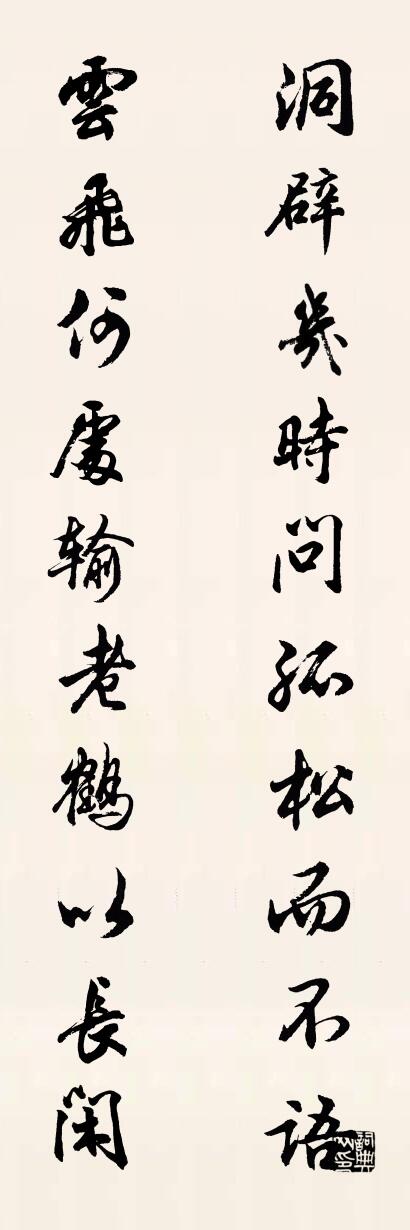 洞辟幾時問孤松而不語
雲飛何處输老鶴以長閑